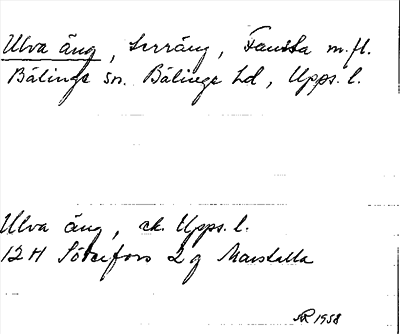 Ulva äng, Surräng, Fansta m.fl.
Bälinge sn. Bälinge hd, Upps. l.
Ulva äng, ek. Upps. l.
12 H Söderfors 2 g Marstalla
NR 1958